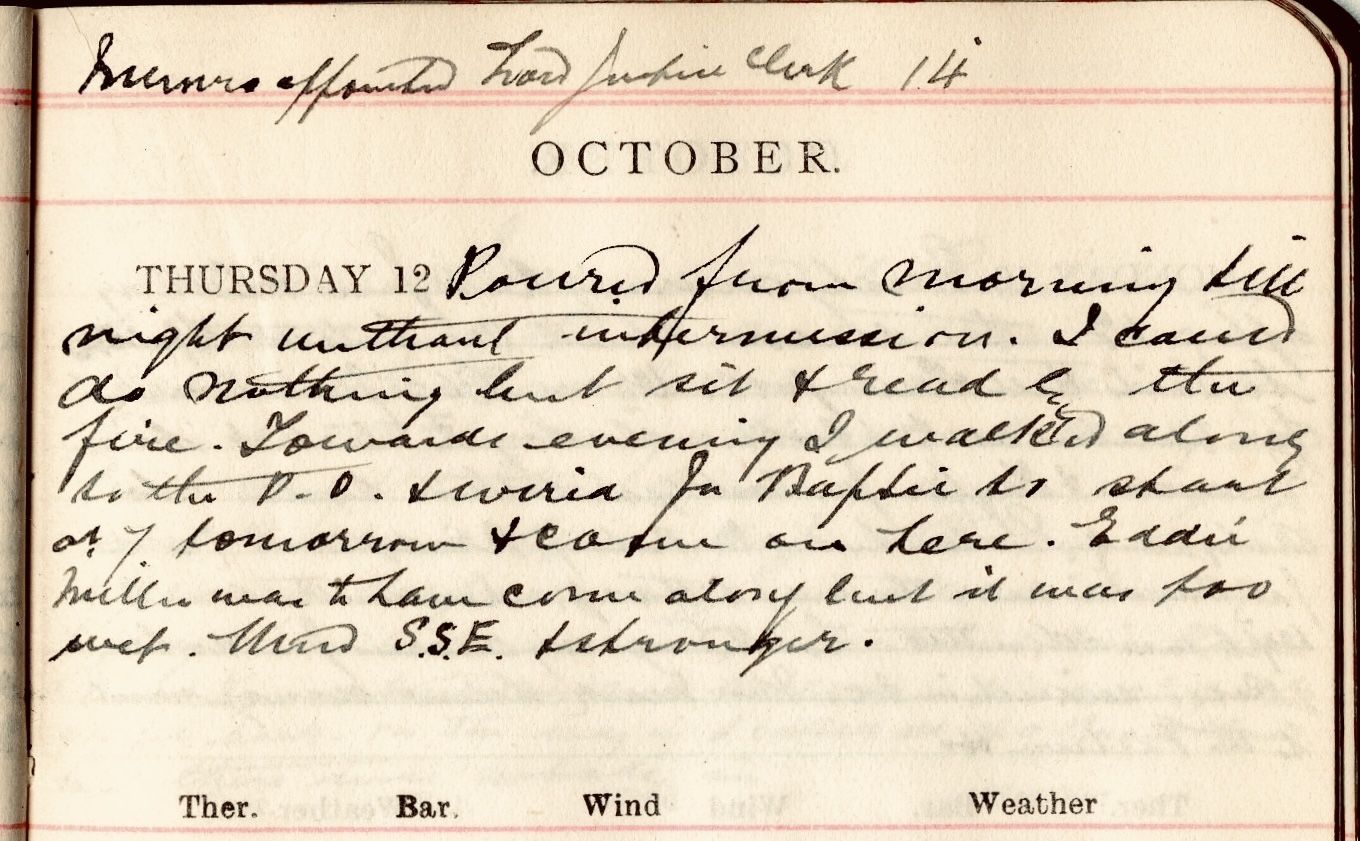 Munro appointed Lord Justice Clerk 14
OCTOBER.
THURSDAY 12 Poured from morning till
night without intermission. I could
do nothing but sit & read by the
fire. Towards evening I walked along
to the P.O. & wired Ja Baptie to start
at 7 tomorrow & come on here. Eddie
Miller was to have come along but it was too
wet. Wind S.S.E. & stronger.
Ther. Bar. Wind Weather